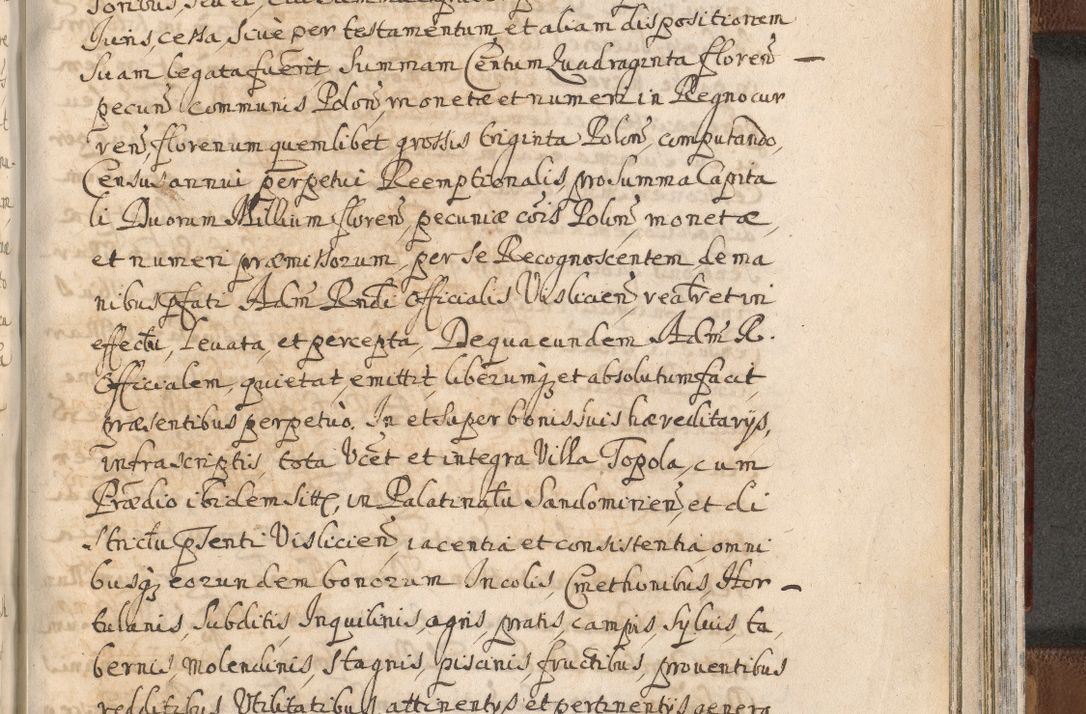 Juris cessa, sive per testamentum, et aliam dispositionem
Suam legata fuerit Summam Centum Quadraginta floren̄ —
pecun̄ communis Polon̄ monetæ et numeri in Regno cur
ren̄, florenum quemlibet grossis triginta Polon̄, computando,
Census annui perpetui Reemptionalis, pro summa Capita
li Duorum Millium floren̄, pecuniæ cōis Polon̄, monetæ,
et numeri præmissorum, per se Recognoscentem de ma
nibus pfati Adm̄ Rndi Officialis Vislicien̄, realr̄ et in
effectu, levata, et percepta, De qua eundem Adm̄ R.
Officialem, quietat, emittit, liberumq; et absolutum facit
præsentibus perpetuo. In et super bonis suis hæreditarijs,
infrascriptis tota Vcēt et integra Villa Topola, cum
Prædio ibidem sitt, in Palatinatu Sandomirien̄, et di
strictu pn̄senti Vislicien̄, iacentia et consistentia omni
busq; eorundem bonorum Incolis, Cmethonibus, Hor —
tulanis, Subditis Inquilinis, agris, pratis, campis, Sylvis, ta
bernis, molendinis, stagnis, piscinis, fructibus, proventibus
redditibus Utilitatibus attinentijs et pertinentijs genera